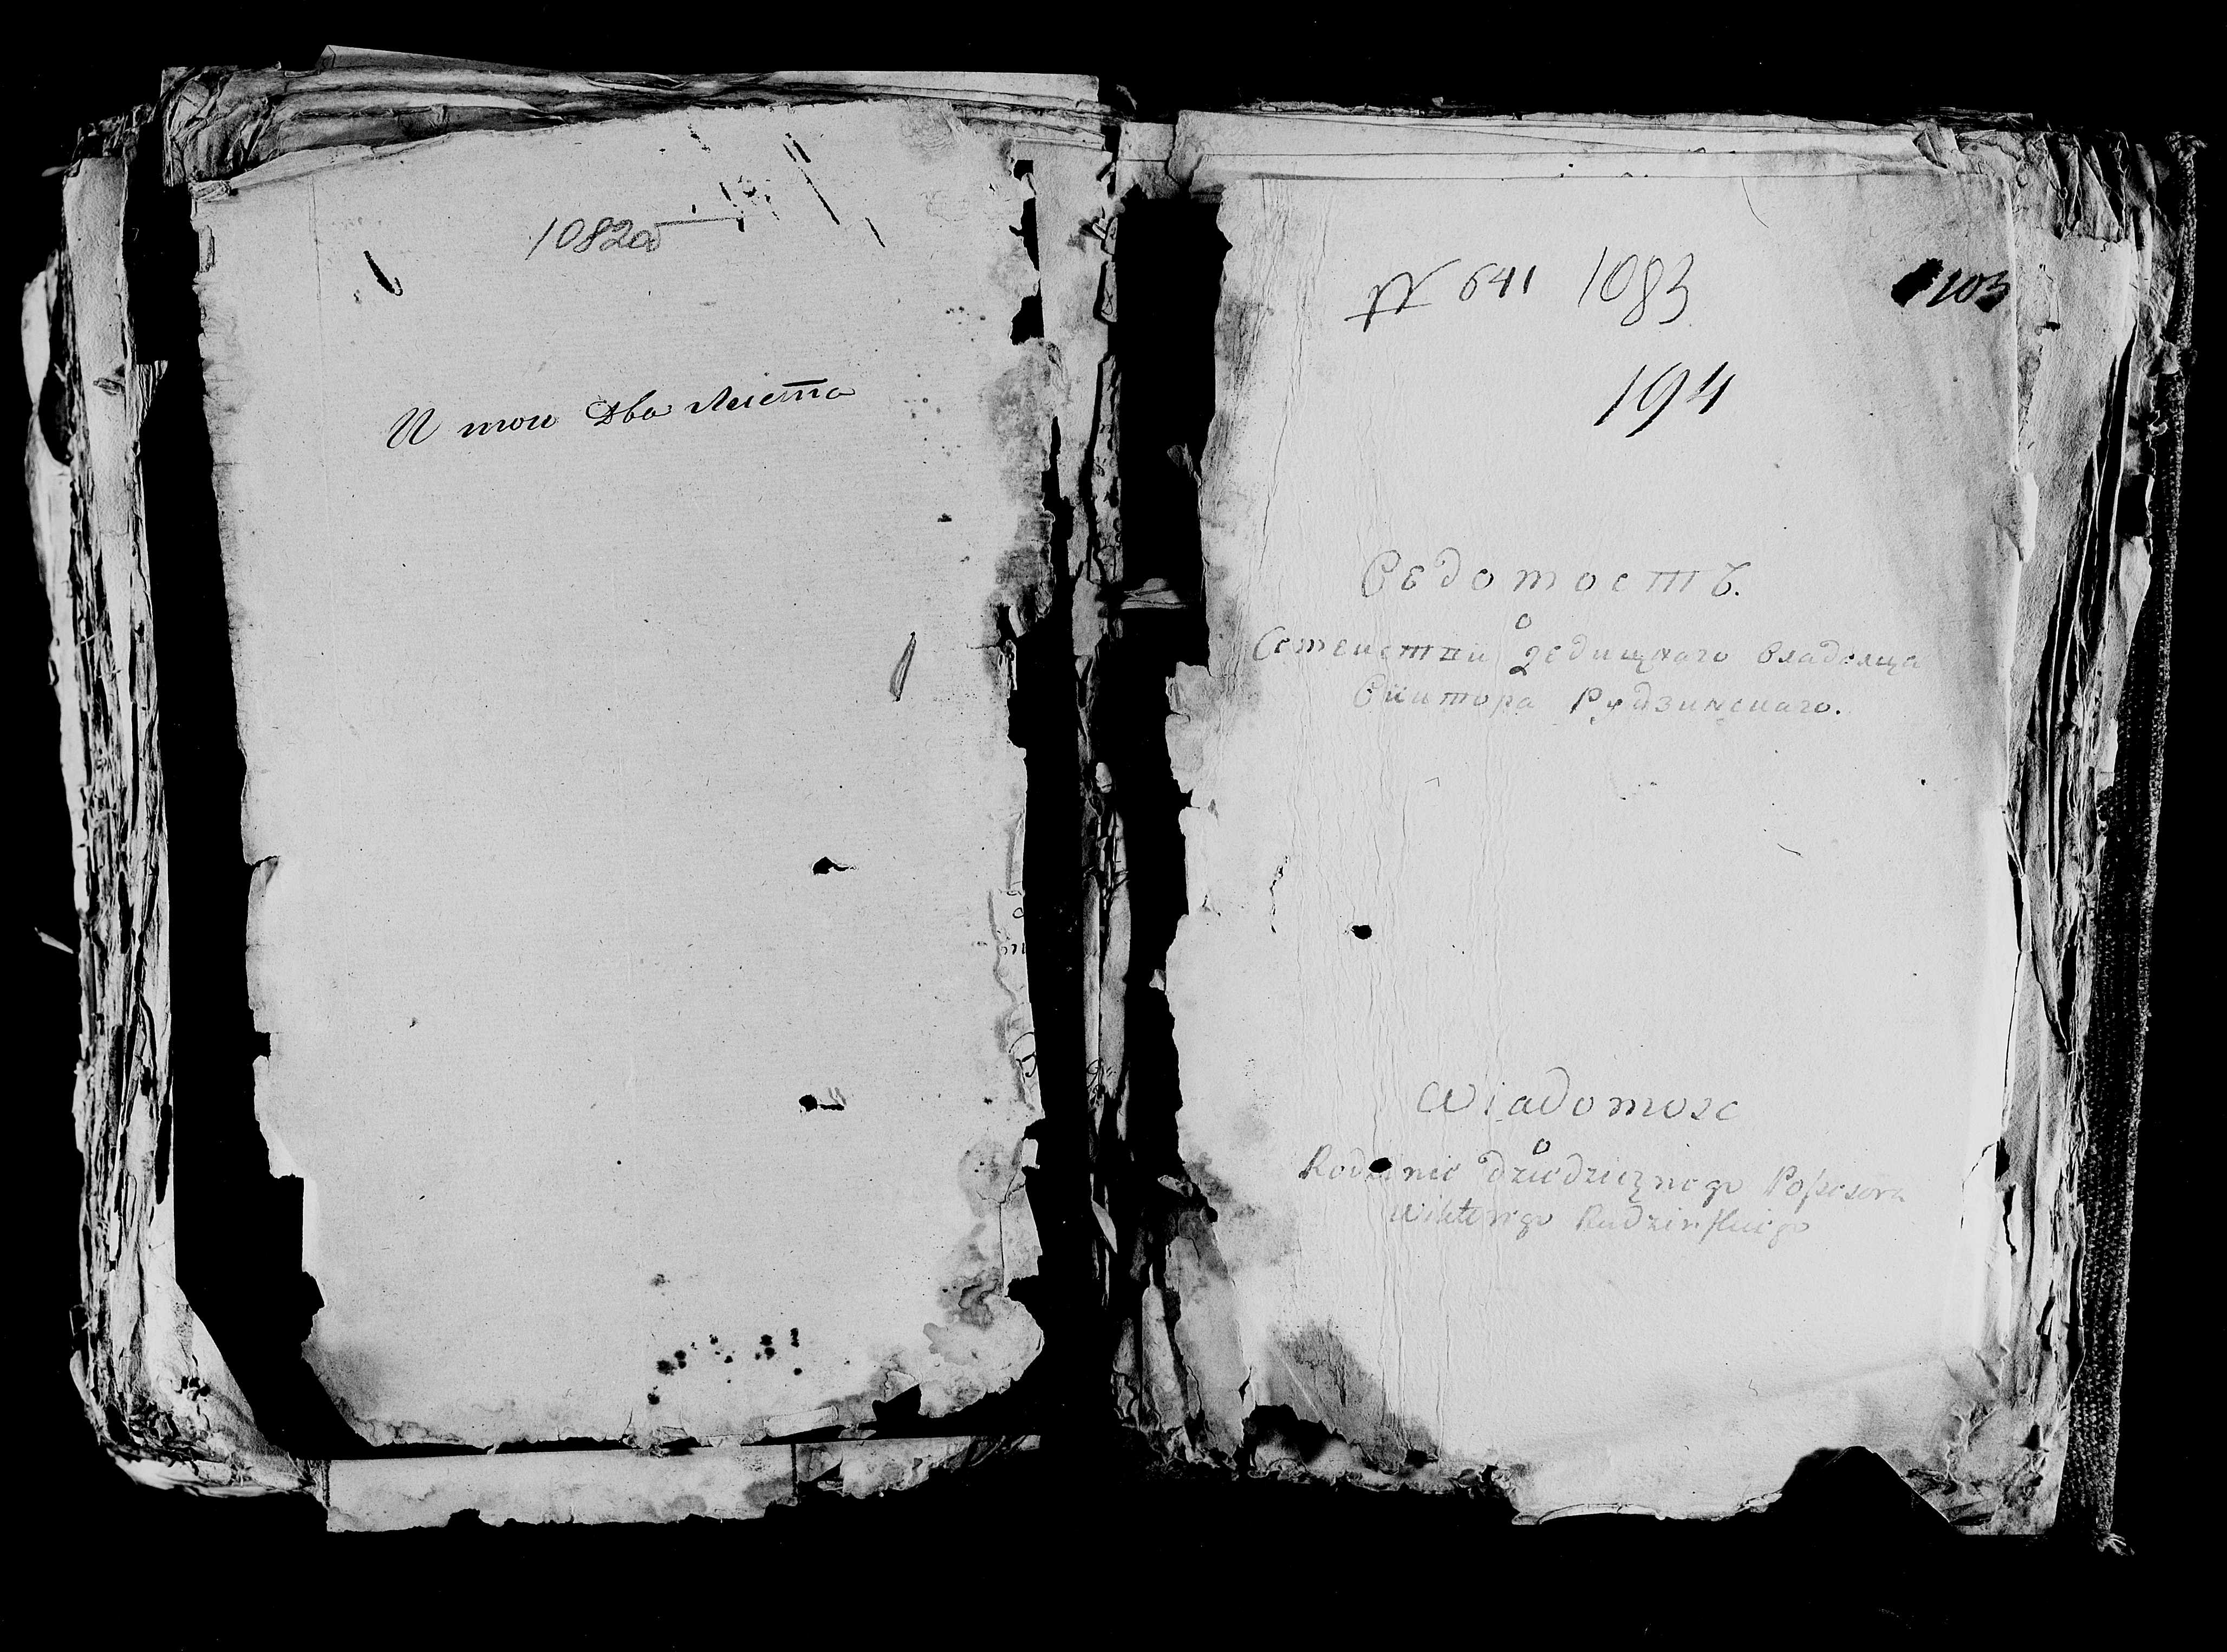 1082об
И тои два листа
№ 641 1083
103
194
Ведомость.
о
Семеистви дедицнаго владелца
Виктора Рудзинскаго.
Wiadomosc
o
Rodzinie dziedzicznego Possesora
Wiktorego Rudzinskiego